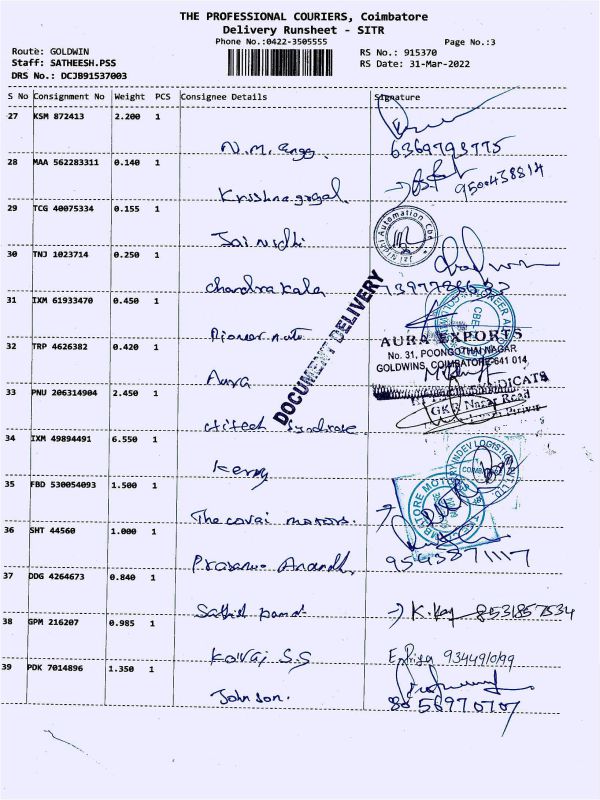 THE PROFESSIONAL COURIERS, Coimbatore
Delivery Runsheet - SITR
Phone No.:0422-3505555
Page No.:3
Route: GOLDWIN
RS No.: 915370
Staff: SATHEESH.PSS
RS Date: 31-Mar-2022
DRS No.: DCJB91537003
S No Consignment No Weight PCS Consignee Details Signature
27 KSM 872413 2.200 1
N.M.
6369793775
28 MAA 562283311 0.140 1
9500438814
29 TCG 40075334 0.155 1
Jai Nidhi Automation Cbe
Jai nidhi
30 TNJ 1023714 0.250 1
Chandrakala
31 IXM 61933470 0.450 1
DOCUMENT DELIVERY
AURA EXPORTS
32 TRP 4626382 0.420 1
No. 31, POONGOTHAI NAGAR
GOLDWINS, COIMBATORE-641 014
Aura
33 PNU 206314904 2.450 1
GKS Nagar Road
Hitech
34 IXM 49894491 6.550 1
INDEV LOGISTICS
Kerry
35 FBD 530054093 1.500 1
COIMBATORE MOTORS
The covai motors.
36 SHT 44560 1.000 1
9543871117
37 DDG 4264673 0.840 1
8531857534
38 GPM 216207 0.985 1
Kovai S.S
9344910199
39 PDK 7014896 1.350 1
Johnson.
8056970707